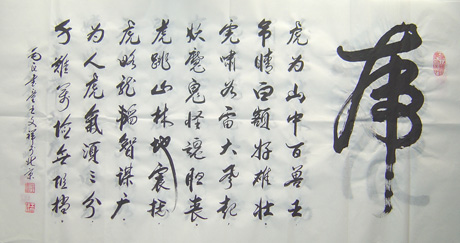 虎
虎为山中百兽王
吊睛白额好雄壮
完啸如雷大风起
妖魔鬼怪魂胆丧
虎跳山林地震撼
虎略龙韬智谋广
为人虎气须三分
千难万险无阻挡